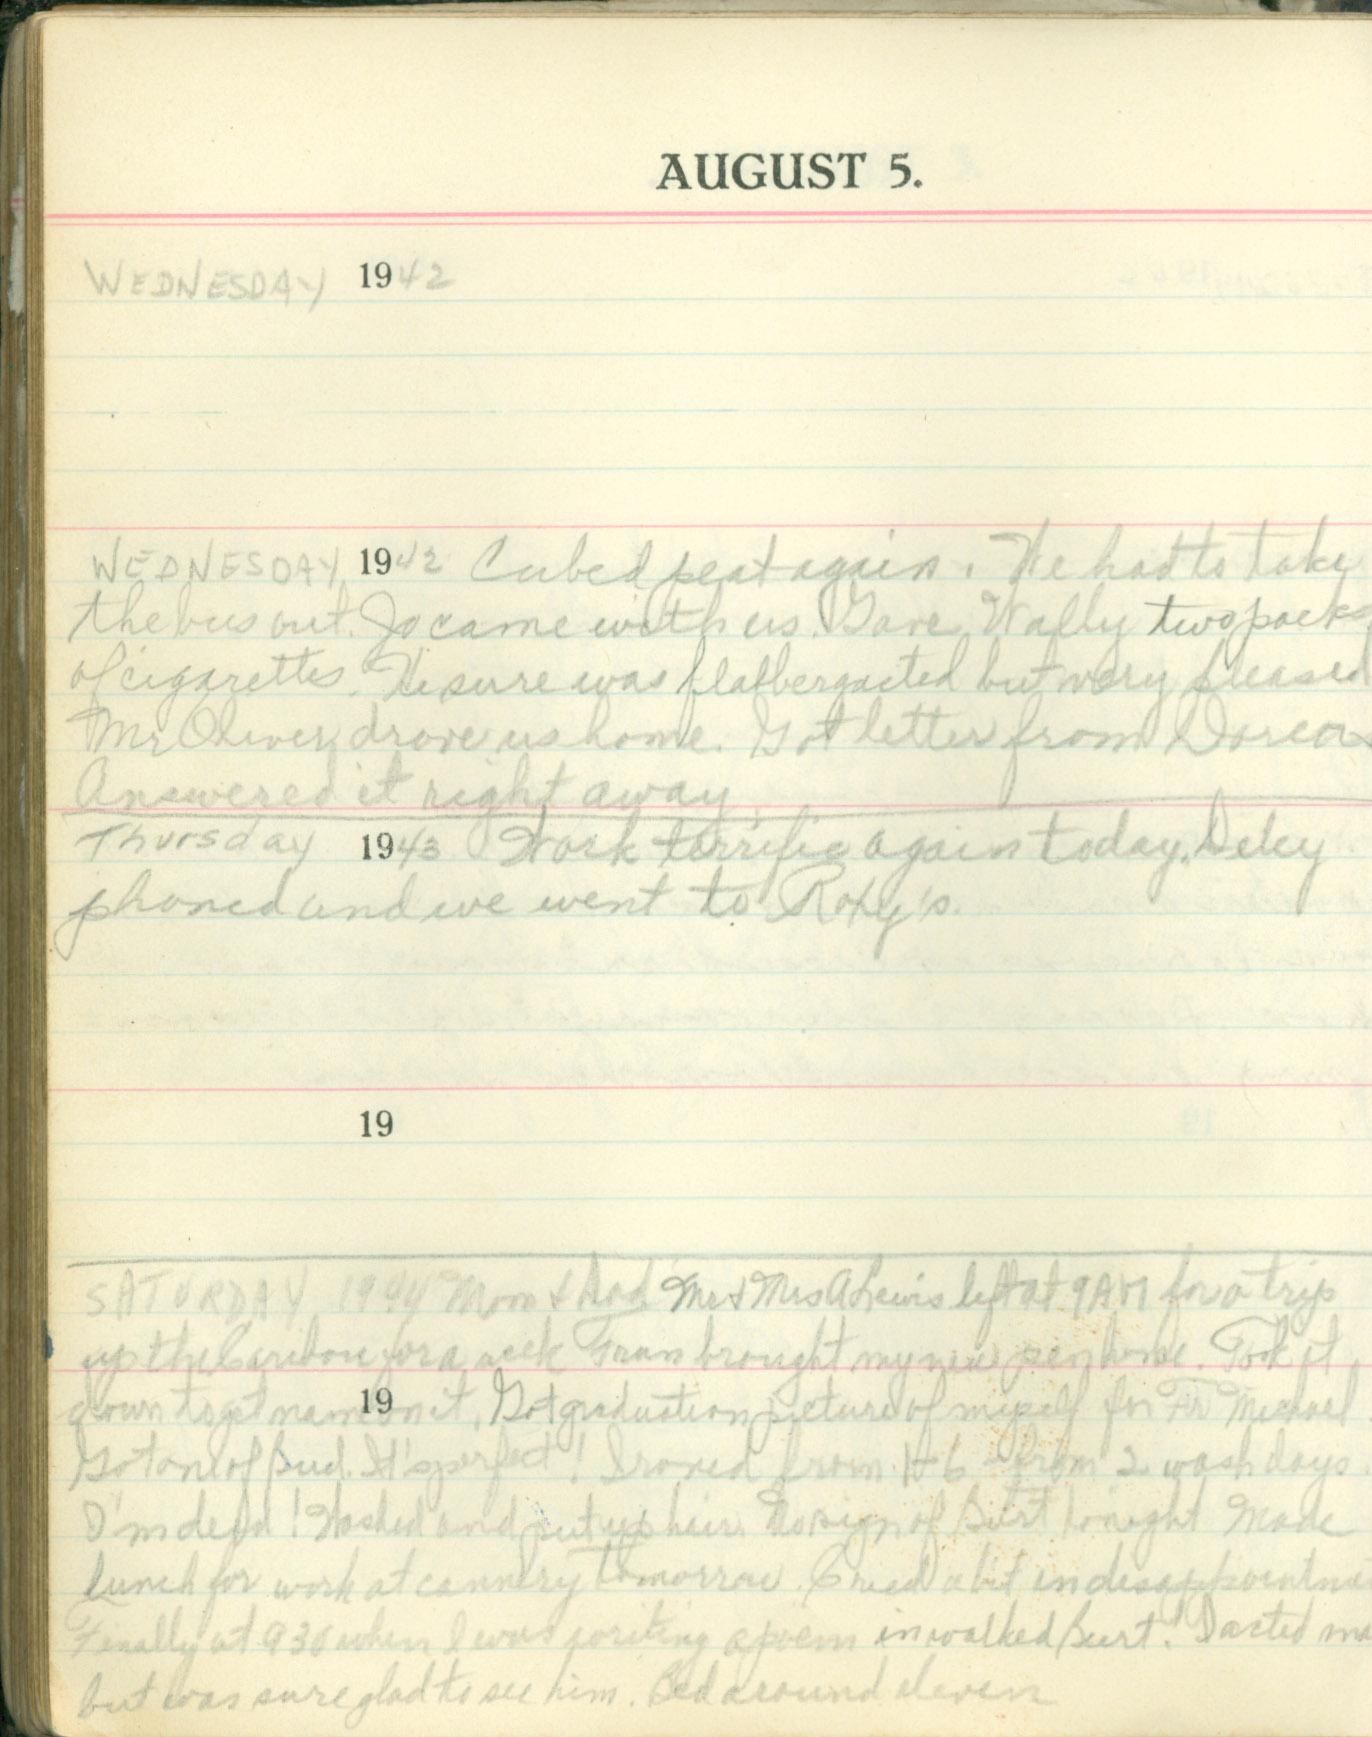 AUGUST 5.
WEDNESDAY 1942
WEDNESDAY 1942 Cubed peat again. We had to take
the bus out. Jo came with us. Gave Wally two packs
of cigarettes. He sure was flalbergasted but very pleased
Mr Oliver drove us home. Got letter from Dorcas
Answered it right away.
Thursday 1943 Work terrific again today. Deley
phoned and we went to Roxy's.
19
SATURDAY 1944 Mom & Dad Mr & Mrs A Lewis left at 9 AM for a trip
up the Caribou for a week Fran brought my new pen home. Took it
19
down to get name on it. Got graduation picture of myself for Fr Michael
Got one of Bud. It's perfect! Ironed from 1-6 from 2 wash days.
I'm dead! Washed and put up hair. No sign of Burt tonight Made
lunch for work at cannery tomorrow. Cried a bit in
Finally at 930 when I was writing a poem in walked Burt! I acted
but was sure glad to see him. Bed around eleven